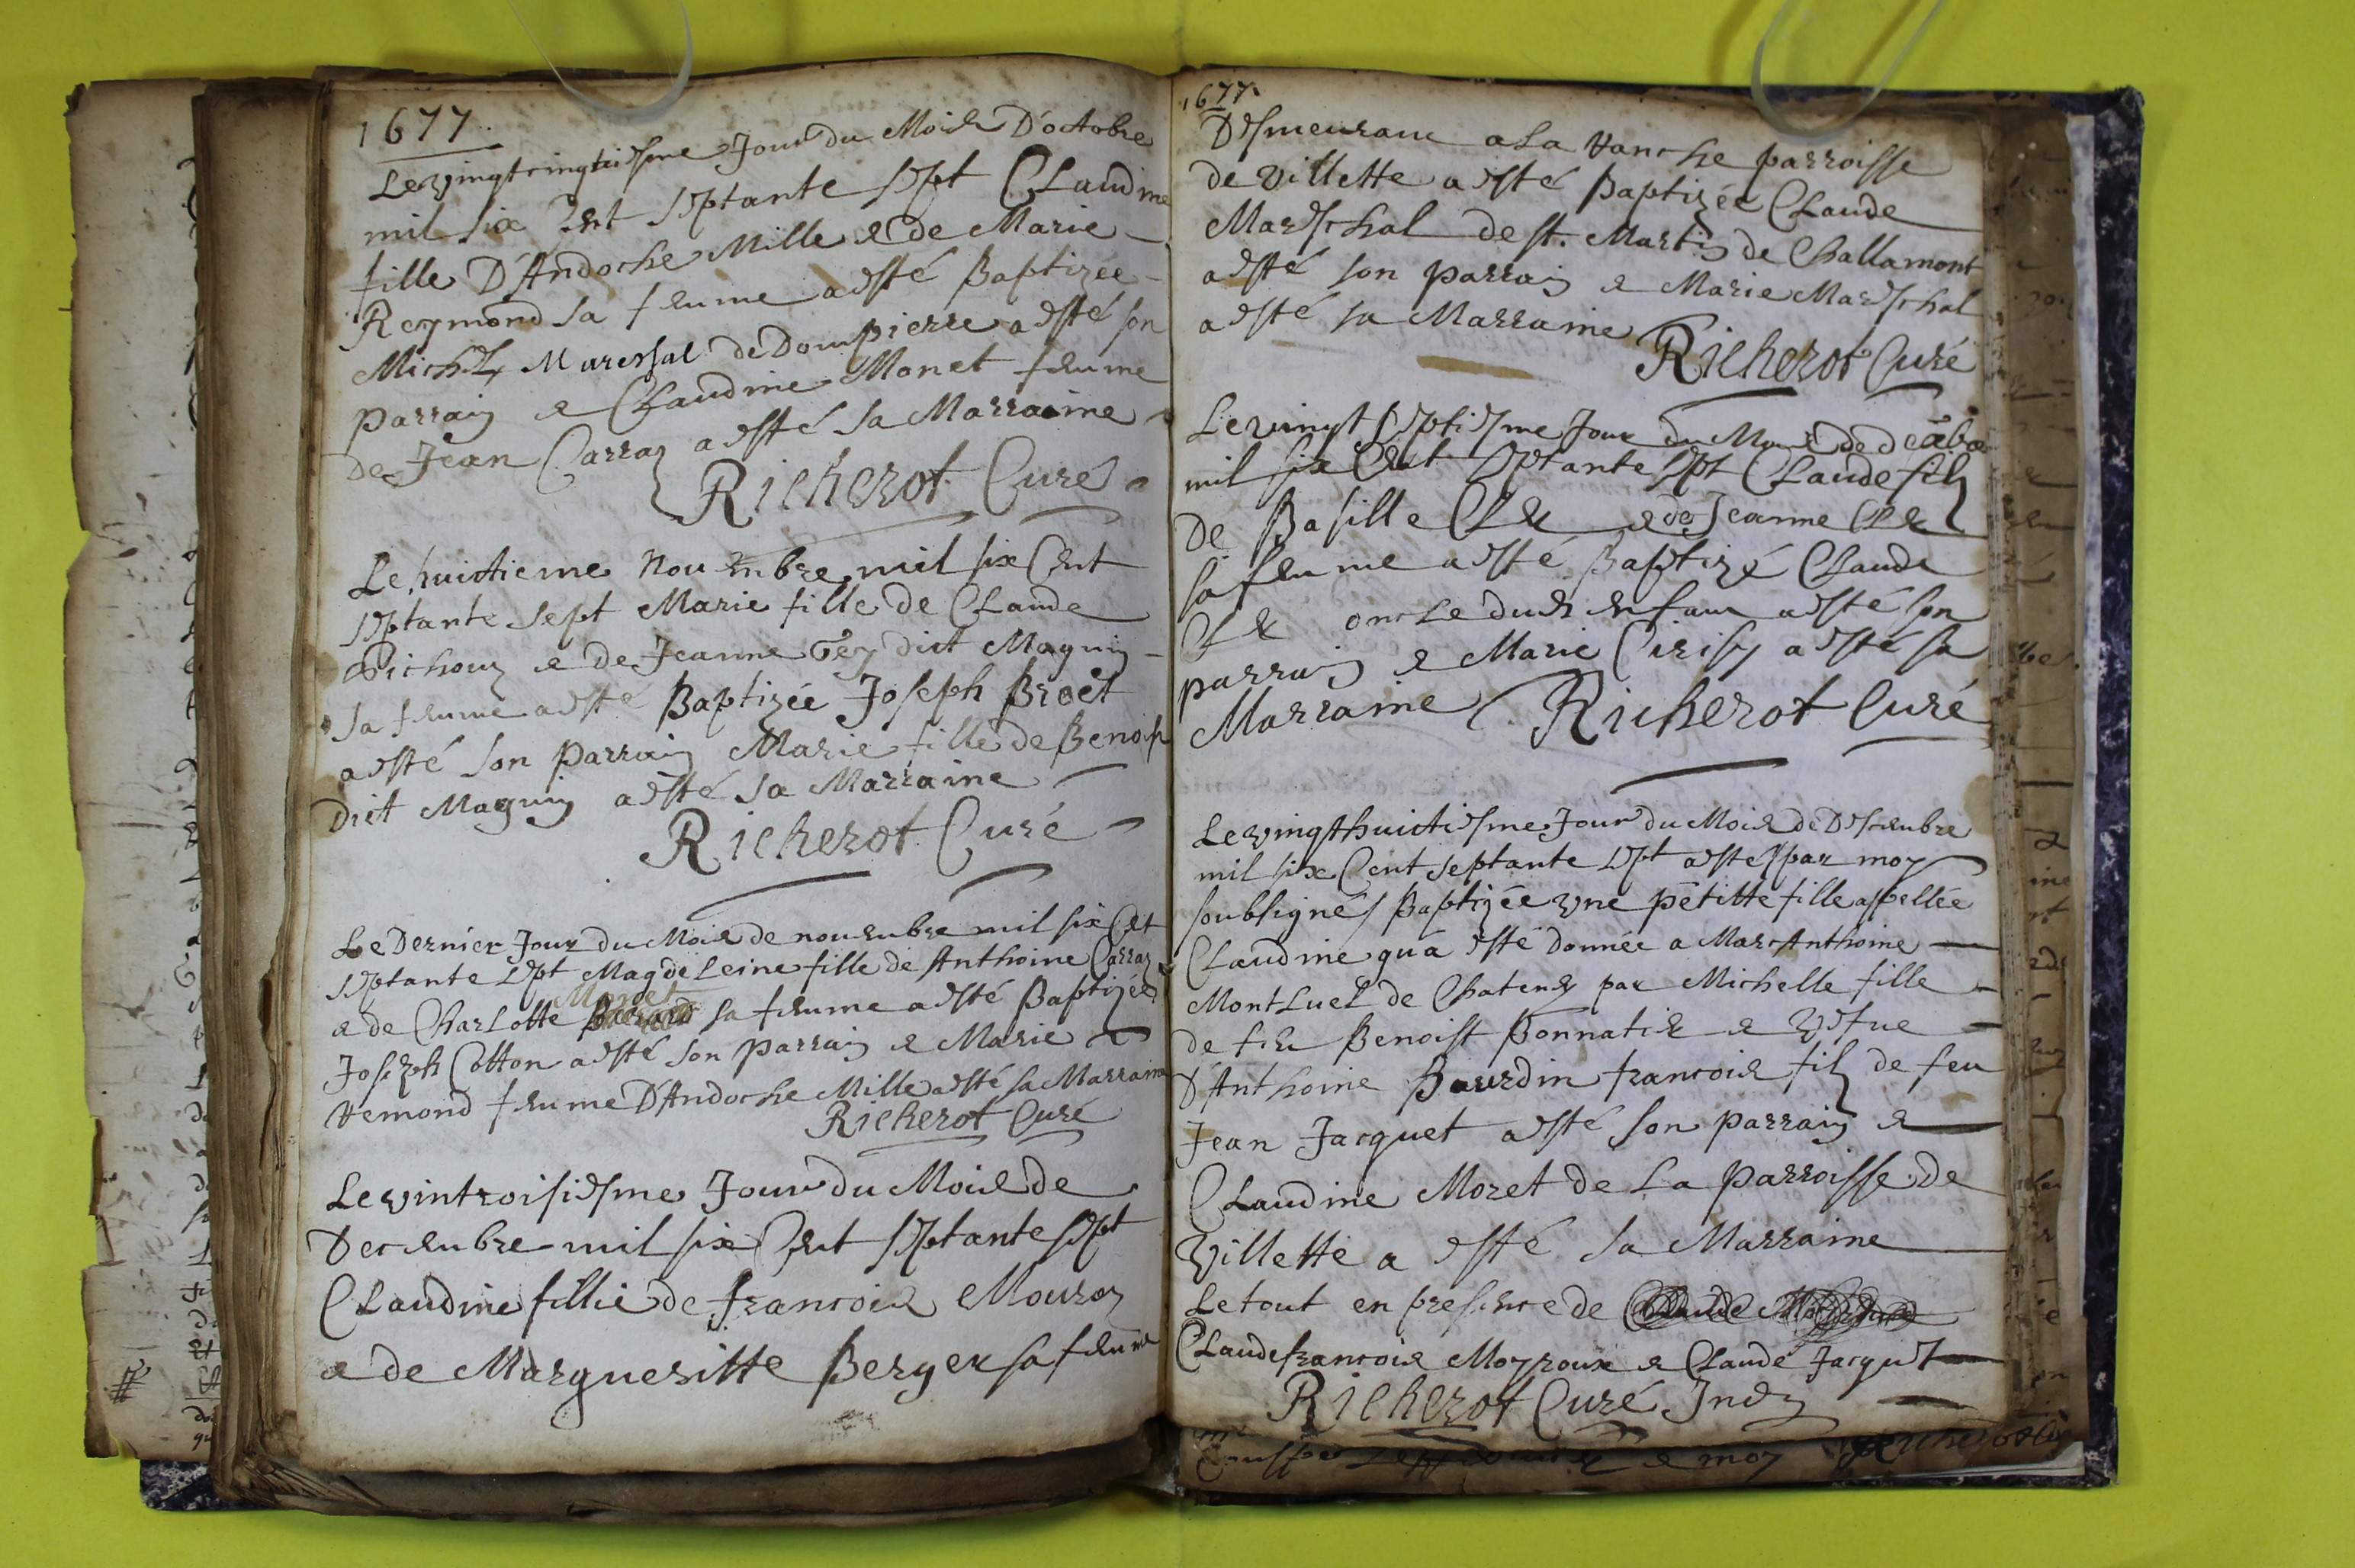 1677
Le vingt cinqtiesme Jour du Mois D'octobre
mil six Cent septante sept Claudine
fille D'Andoche Mille & de Marie
Reymond sa femme a esté Baptizée
Michel Mareshal de Dompierre a esté son
parrain & Claudine Monet femme
de Jean Carraz a esté sa Marraine
Richerot Curé
Le huictieme Nouembre mil six Cent
septante sept Marie fille de Claude
Pichouz & de Jeanne Gey dict Magnin
sa femme a esté Baptizée Joseph Broet
a esté son parrain Marie fille de Benoist
dict Magnin a esté sa Marraine
Richerot Curé
Le Dernier Jour du Mois de nouembre mil six Cent
septante sept Magdeleine fille de Anthoine Carraz
Monet
& de Charlotte sa femme a esté Baptizée
Joseph Cotton a esté son parrain & Marie
Remond femme D'Andoche Mille a esté sa Marraine
Richerot Curé
Le vintroisiesme Jour du Mois de
Decembre mil six Cent septante sept
Claudine fillie de francois Mouroz
& de Marguesitte Berger sa femme
1677
Desmeurant a la Vanche parroisse
de Villette a esté Baptizée Claude
Mareschal de st. Martin de Challamont
a esté son parrain & Marie Mareschal
a esté sa Marraine
Richerot Curé
Le vingt septiesme Jour du Mois de
mil six Cent septante sept Claude filz
de Basille Cler & de Jeanne Cler
sa femme a esté Baptizé Claude
Cler oncle dudt enfant a esté son
parrain & Marie a esté sa
Marraine Richerot Curé
Le vingt huictiesme Jour du Mois de Descembre
mil six Cent septante sept a esté par moy
soubsigné Baptizée vne petitte fille appellée
Claudine qu'a esté donnée a Marc Anthoine
Montluel de Chatenay par Michelle fille
de feu Benoist Bonnatier & vefue
D'Anthoine Bourdin francois filz de feu
Jean Jacquet a esté son parrain &
Claudine Moret de la parroisse de
villette a esté sa Marraine
Le tout en presence de
Claude francois Moyroux & Claude Jacquet
Richerot Curé Indz
& moy